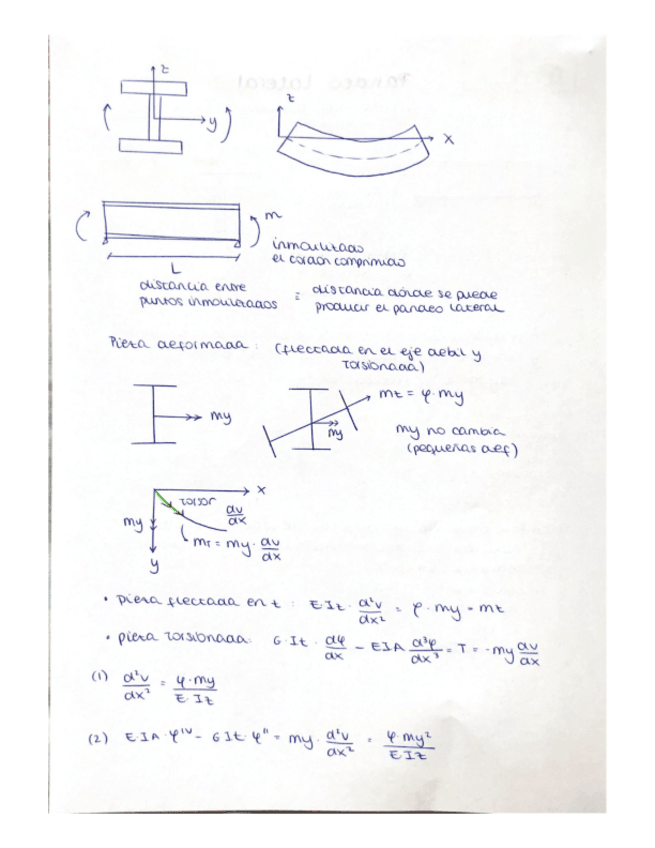 z
y
z
x
m
inmovilizado
el cordón comprimido
L
distancia entre
puntos inmovilizados
=
distancia dónde se puede
producir el pandeo lateral
Pieza deformada : (flectada en el eje debil y
torsionada)
my
mz = φ·my
my
my no cambia
(pequeñas def)
x
torsor
dv/dx
my
mT = my · dv/dx
y
• pieza flectada en z : EIz · d²v/dx² = φ · my = mz
• pieza torsionada: G·It · dφ/dx - EIA d³φ/dx³ = T = -my dv/dx
(1) d²v/dx² = φ·my/E·Iz
(2) E·IA·φᴵⱽ - GIt·φ" = my · d²v/dx² = φ·my²/EIz